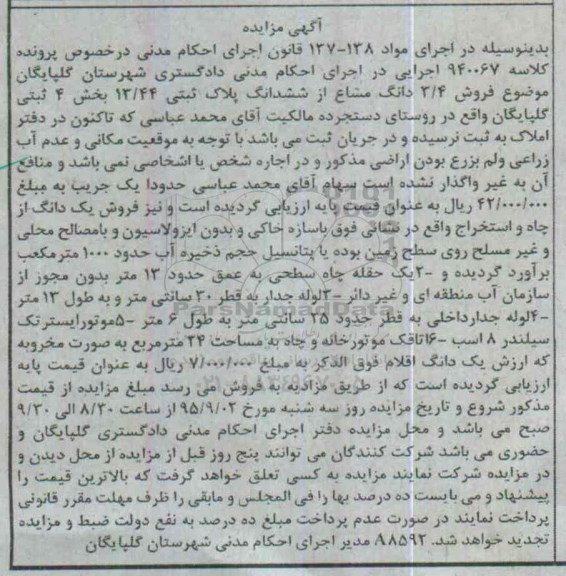 آگهی مزایده
بدینوسیله در اجرای مواد ۱۳۸-۱۳۷ قانون اجرای احکام مدنی درخصوص پرونده
کلاسه ۹۴۰۰۶۷ اجرایی در اجرای احکام مدنی دادگستری شهرستان گلپایگان
موضوع فروش ۳/۴ دانگ مشاع از ششدانگ پلاک ثبتی ۱۳/۴۴ بخش ۴ ثبتی
گلپایگان واقع در روستای دستجرده مالکیت آقای محمد عباسی که تاکنون در دفتر
املاک به ثبت نرسیده و در جریان ثبت می باشد با توجه به موقعیت مکانی و عدم آب
زراعی ولم بزرع بودن اراضی مذکور و در اجاره شخص یا اشخاصی نمی باشد و منافع
آن به غیر واگذار نشده است سهام آقای محمد عباسی حدودا یک جریب به مبلغ
۴۲/۰۰۰/۰۰۰ ریال به عنوان قیمت پایه ارزیابی گردیده است و نیز فروش یک دانگ از
چاه و استخراج واقع در نشانی فوق باسازه خاکی و بدون ایزولاسیون و بامصالح محلی
و غیر مسلح روی سطح زمین بوده با پتانسیل حجم ذخیره آب حدود ۱۰۰۰ مترمکعب
برآورد گردیده و -۲یک حلقه چاه سطحی به عمق حدود ۱۳ متر بدون مجوز از
سازمان آب منطقه ای و غیر دائر -۳لوله جدار به قطر ۳۰ سانتی متر و به طول ۱۳ متر
-۴لوله جدارداخلی به قطر حدود ۲۵ سانتی متر به طول ۶ متر -۵موتورلیسترتک
سیلندر ۸ اسب -۶اتاقک موتورخانه و چاه به مساحت ۲۴ مترمربع به صورت مخروبه
که ارزش یک دانگ اقلام فوق الذکر به مبلغ ۷/۰۰۰/۰۰۰ ریال به عنوان قیمت پایه
ارزیابی گردیده است که از طریق مزایده به فروش می رسد مبلغ مزایده از قیمت
مذکور شروع و تاریخ مزایده روز سه شنبه مورخ ۹۵/۹/۰۲ از ساعت ۸/۳۰ الی ۹/۳۰
صبح می باشد و محل مزایده دفتر اجرای احکام مدنی دادگستری گلپایگان و
حضوری می باشد شرکت کنندگان می توانند پنج روز قبل از مزایده از محل دیدن و
در مزایده شرکت نمایند مزایده به کسی تعلق خواهد گرفت که بالاترین قیمت را
پیشنهاد و می بایست ده درصد بها را فی المجلس و مابقی را ظرف مهلت مقرر قانونی
پرداخت نمایند در صورت عدم پرداخت مبلغ ده درصد به نفع دولت ضبط و مزایده
تجدید خواهد شد. ۸۸۵۹۲ مدیر اجرای احکام مدنی شهرستان گلپایگان
ParsNamadData